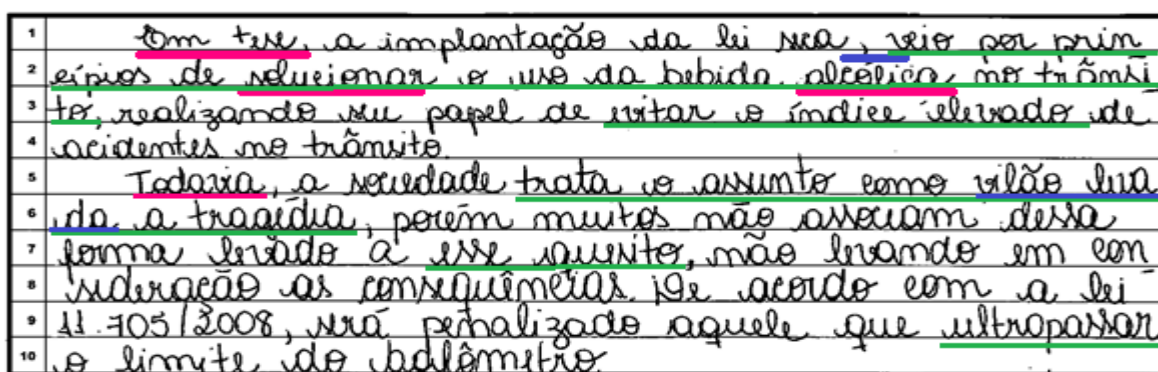 1 Em tese, a implantação da lei seca, veio por prin
2 cípios de solucionar o uso da bebida alcólica no trânsi
3 to, realizando seu papel de evitar o índice elevado de
4 acidentes no trânsito.
5 Todavia, a sociedade trata o assunto como vilão leva
6 da a tragédia, porém muitos não associam dessa
7 forma levado a esse quesito, não levando em con
8 sideração as consequências. De acordo com a lei
9 11.705/2008, será penalizado aquele que ultropassar
10 o limite do bafômetro.